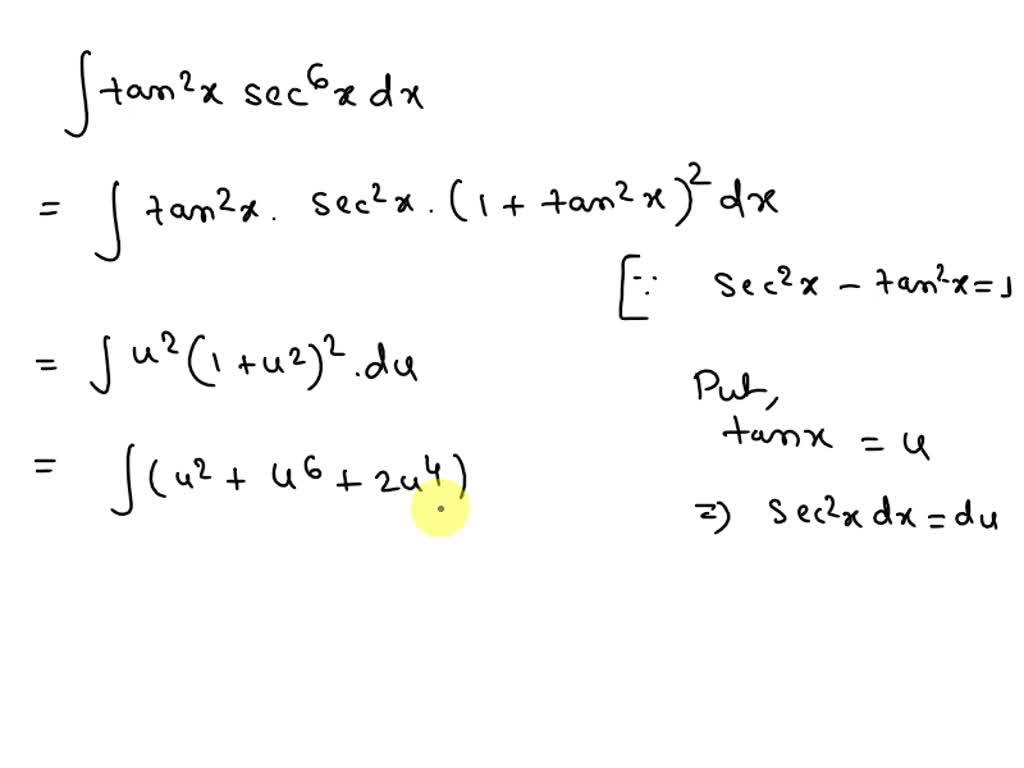 ∫ tan²x sec⁶x dx
= ∫ tan²x . sec²x . (1 + tan²x)² dx
[∵ sec²x - tan²x = 1
= ∫ u² (1 + u²)² . du
Put,
tanx = u
= ∫ (u² + u⁶ + 2u⁴)
⇒ sec²x dx = du